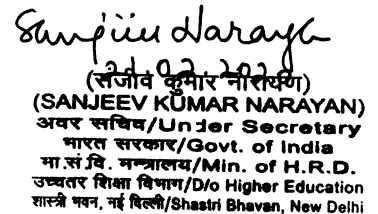 Sanjeev Narayan
(संजीव कुमार नारायण)
(SANJEEV KUMAR NARAYAN)
अवर सचिव/Under Secretary
भारत सरकार/Govt. of India
मा.सं.वि. मन्त्रालय/Min. of H.R.D.
उच्चतर शिक्षा विभाग/D/o Higher Education
शास्त्री भवन, नई दिल्ली/Shastri Bhavan, New Delhi